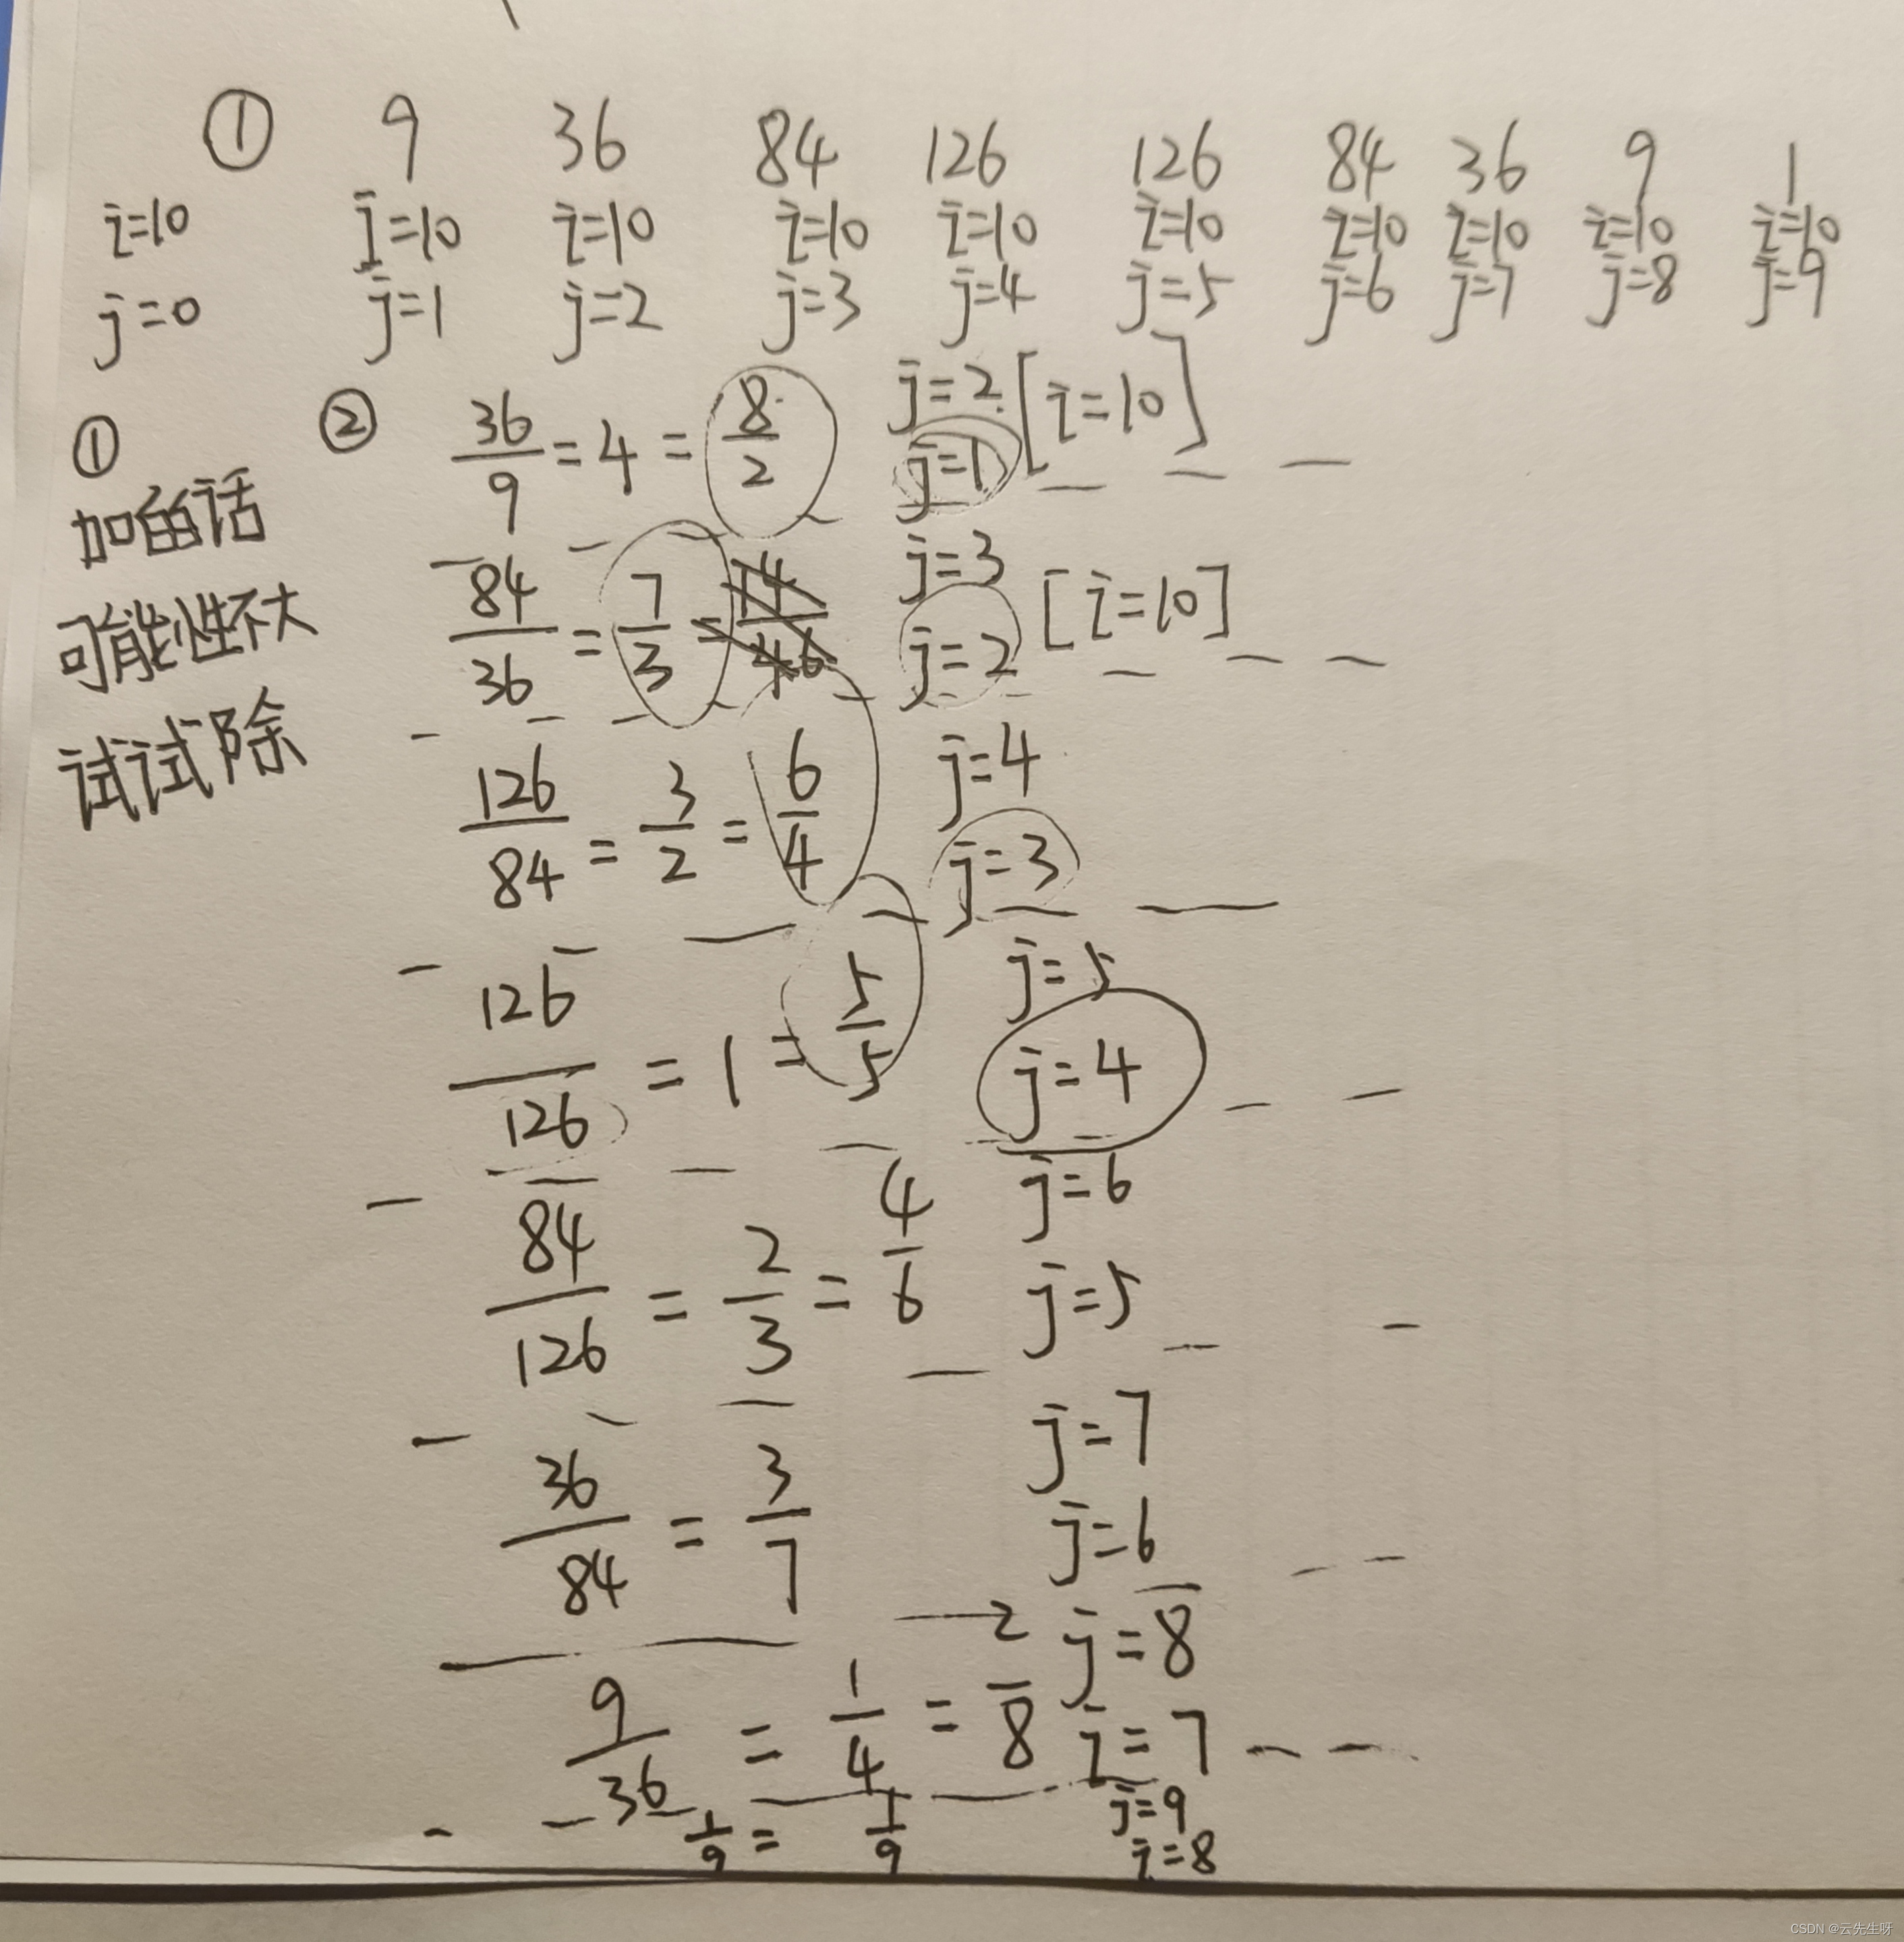 ① 9 36 84 126 126 84 36 9 1
i=10 i=10 i=10 i=10 i=10 i=10 i=10 i=10 i=10 i=10
j=0 j=1 j=2 j=3 j=4 j=5 j=6 j=7 j=8 j=9
①
加的话
可能性不大
试试除
② 36/9 = 4 = 8/2 j=2 j=1 [i=10]
84/36 = 7/3 = j=3 j=2 [i=10]
126/84 = 3/2 = 6/4 j=4 j=3
126/126 = 1 = 5/5 j=5 j=4
84/126 = 2/3 = 4/6 j=6 j=5
36/84 = 3/7 j=7 j=6
9/36 = 1/4 = 2/8 j=8 j=7
1/9 = 1/9 j=9 j=8
CSDN @云先生呀